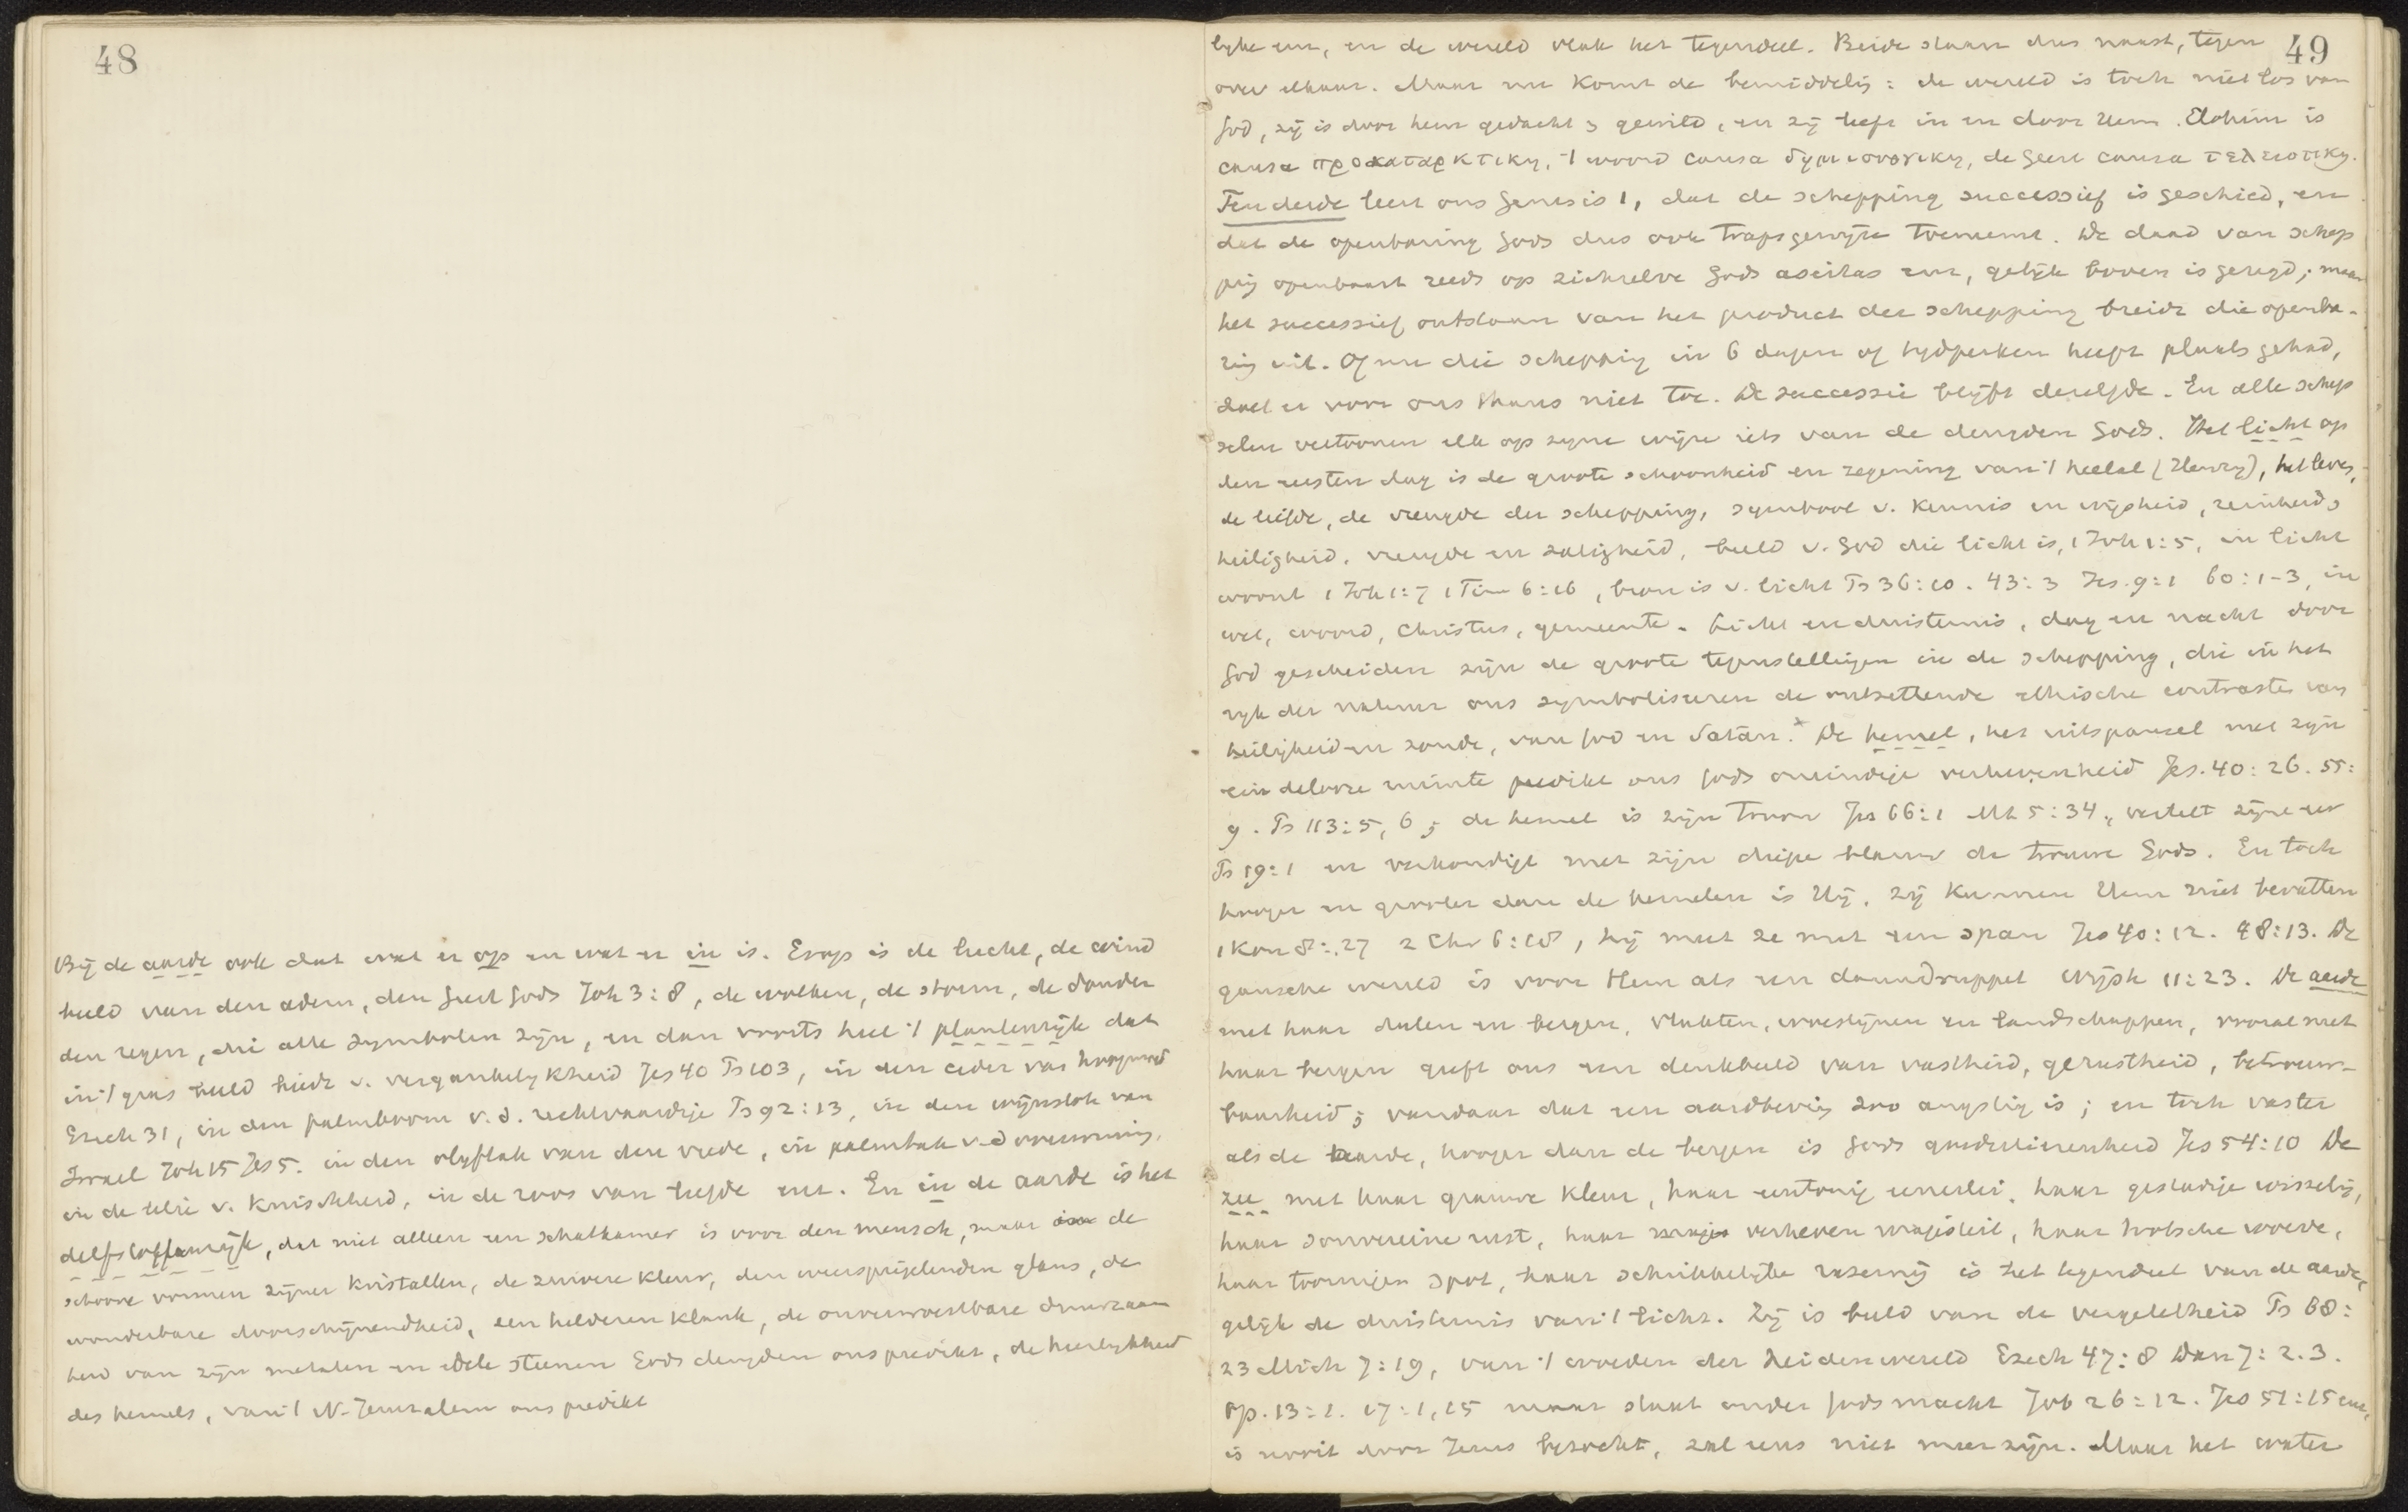 48
Bij de aarde ook dat wat er op en wat er in is. Erop is de lucht, de wind
beeld van den adem, den Geest Gods Joh 3:8, de wolken, de storm, de donder
den regen, die alle symbolen zijn, en dan voorts heel 't plantenrijk dat
in 't gras beeld biedt v. vergankelykheid Jes 40 Ps 103, in den ceder van hoogmoed
Ezech 31, in den palmboom v. d. rechtvaardige Ps 92:13, in den wijnstok van
Israel Joh 15 Jes 5. in den olyftak van den vrede, in palmtak v. d overwinning,
in de lelie v. Kuischheid, in de roos van liefde enz. En in de aarde is het
delfstoffenrijk, dat niet alleen een schatkamer is voor den mensch, maar de
schoone vormen zijner kristallen, de zuivere kleur, den weerspiegelenden glans, de
wonderbare doorschijnendheid, een helderen klank, de onverwoestbare duurzaam
heid van zijn metalen en edele steenen Gods deugden ons predikt, de heerlykheid
des hemels, van 't N. Jeruzalem ons predikt
49
lyke enz, en de wereld vlak het tegendeel. Beide staan dus naast, tegen
over elkaar. Maar nu komt de bemiddelig: de wereld is toch niet los van
God, zij is door hem gedacht & gewild, en zij leeft in en door Hem. Elohim is
causa προκαταρκτικη, 't woord causa δημιουργικη, de Geest causa τελειοτικη.
Ten derde leert ons Genesis 1, dat de schepping successief is geschied, en
dat de openbaring Gods dus ook trapsgewijze toeneemt. De daad van schep
ping openbaart reeds op zichzelve Gods aseitas enz, gelijk boven is gezegd; maar
het successief ontstaan van het product der schepping breidt die openba-
ring uit. Of nu die schepping in 6 dagen of tydperken heeft plaats gehad,
doet er voor ons thans niet toe. De successie blijft dezelfde. En alle schep
selen vertoonen elk op zyne wijze iets van de deugden Gods. Het licht op
den eersten dag is de groote schoonheid en zegening van 't heelal (Henry), het leven,
de liefde, de vreugde der schepping, symbool v. kennis en wijsheid, reinheid &
heiligheid, vreugde en zaligheid, beeld v. God die licht is, 1 Joh 1:5, in licht
woont 1 Joh 1:7 1 Tim 6:16, bron is v. licht Ps 36:10. 43:3 Jes. 9:1 60:1-3, in
wet, woord, Christus, gemeente. Licht en duisternis, dag en nacht door
God gescheiden zijn de groote tegenstellingen in de schepping, die in het
ryk der natuur ons symboliseeren de ontzettende ethische contrasten van
heiligheid en zonde, van God en Satan. De hemel, het uitspansel met zijn
eindelooze ruimte predikt ons Gods oneindige verhevenheid Jes. 40:26. 55:
9. Ps 113:5, 6; de hemel is zijn troon Jes 66:1 Mt 5:34, vertelt zijne eer
Ps 19:1 en verkondigt met zijn diepe blauw de trouwe Gods. En toch
hooger en grooter dan de hemelen is Hij, zij kunnen Hem niet bevatten
1 Kon 8:27 2 Chr 6:18, hij meet ze met een span Jes 40:12. 48:13. De
gansche wereld is voor Hem als een dauwdruppel Wijsh 11:23. De aarde
met haar dalen en bergen, vlakten, woestijnen en landschappen, vooral met
haar bergen geeft ons een denkbeeld van vastheid, gerustheid, betrouw-
baarheid; vandaar dat een aardbeving zoo angstig is; en toch vaster
als de aarde, hooger dan de bergen is Gods goedertierenheid Jes 54:10 De
zee met haar grauwe kleur, haar eentonig eenerlei, haar gestadige wisseling,
haar souvereine rust, haar verheven majesteit, haar trotsche woede,
haar toornigen spot, haar schrikkelyke razernij is het tegendeel van de aarde,
gelijk de duisternis van 't licht. Zij is beeld van de vergetelheid Ps 68:
23 Mich 7:19, van 't woeden der heidenwereld Ezech 47:8 Dan 7:2.3.
Op. 13:1. 17:1,15 maar staat onder Gods macht Job 26:12. Jes 51:15 enz,
is nooit door Jezus bezocht, zal eens niet meer zijn. Maar het water